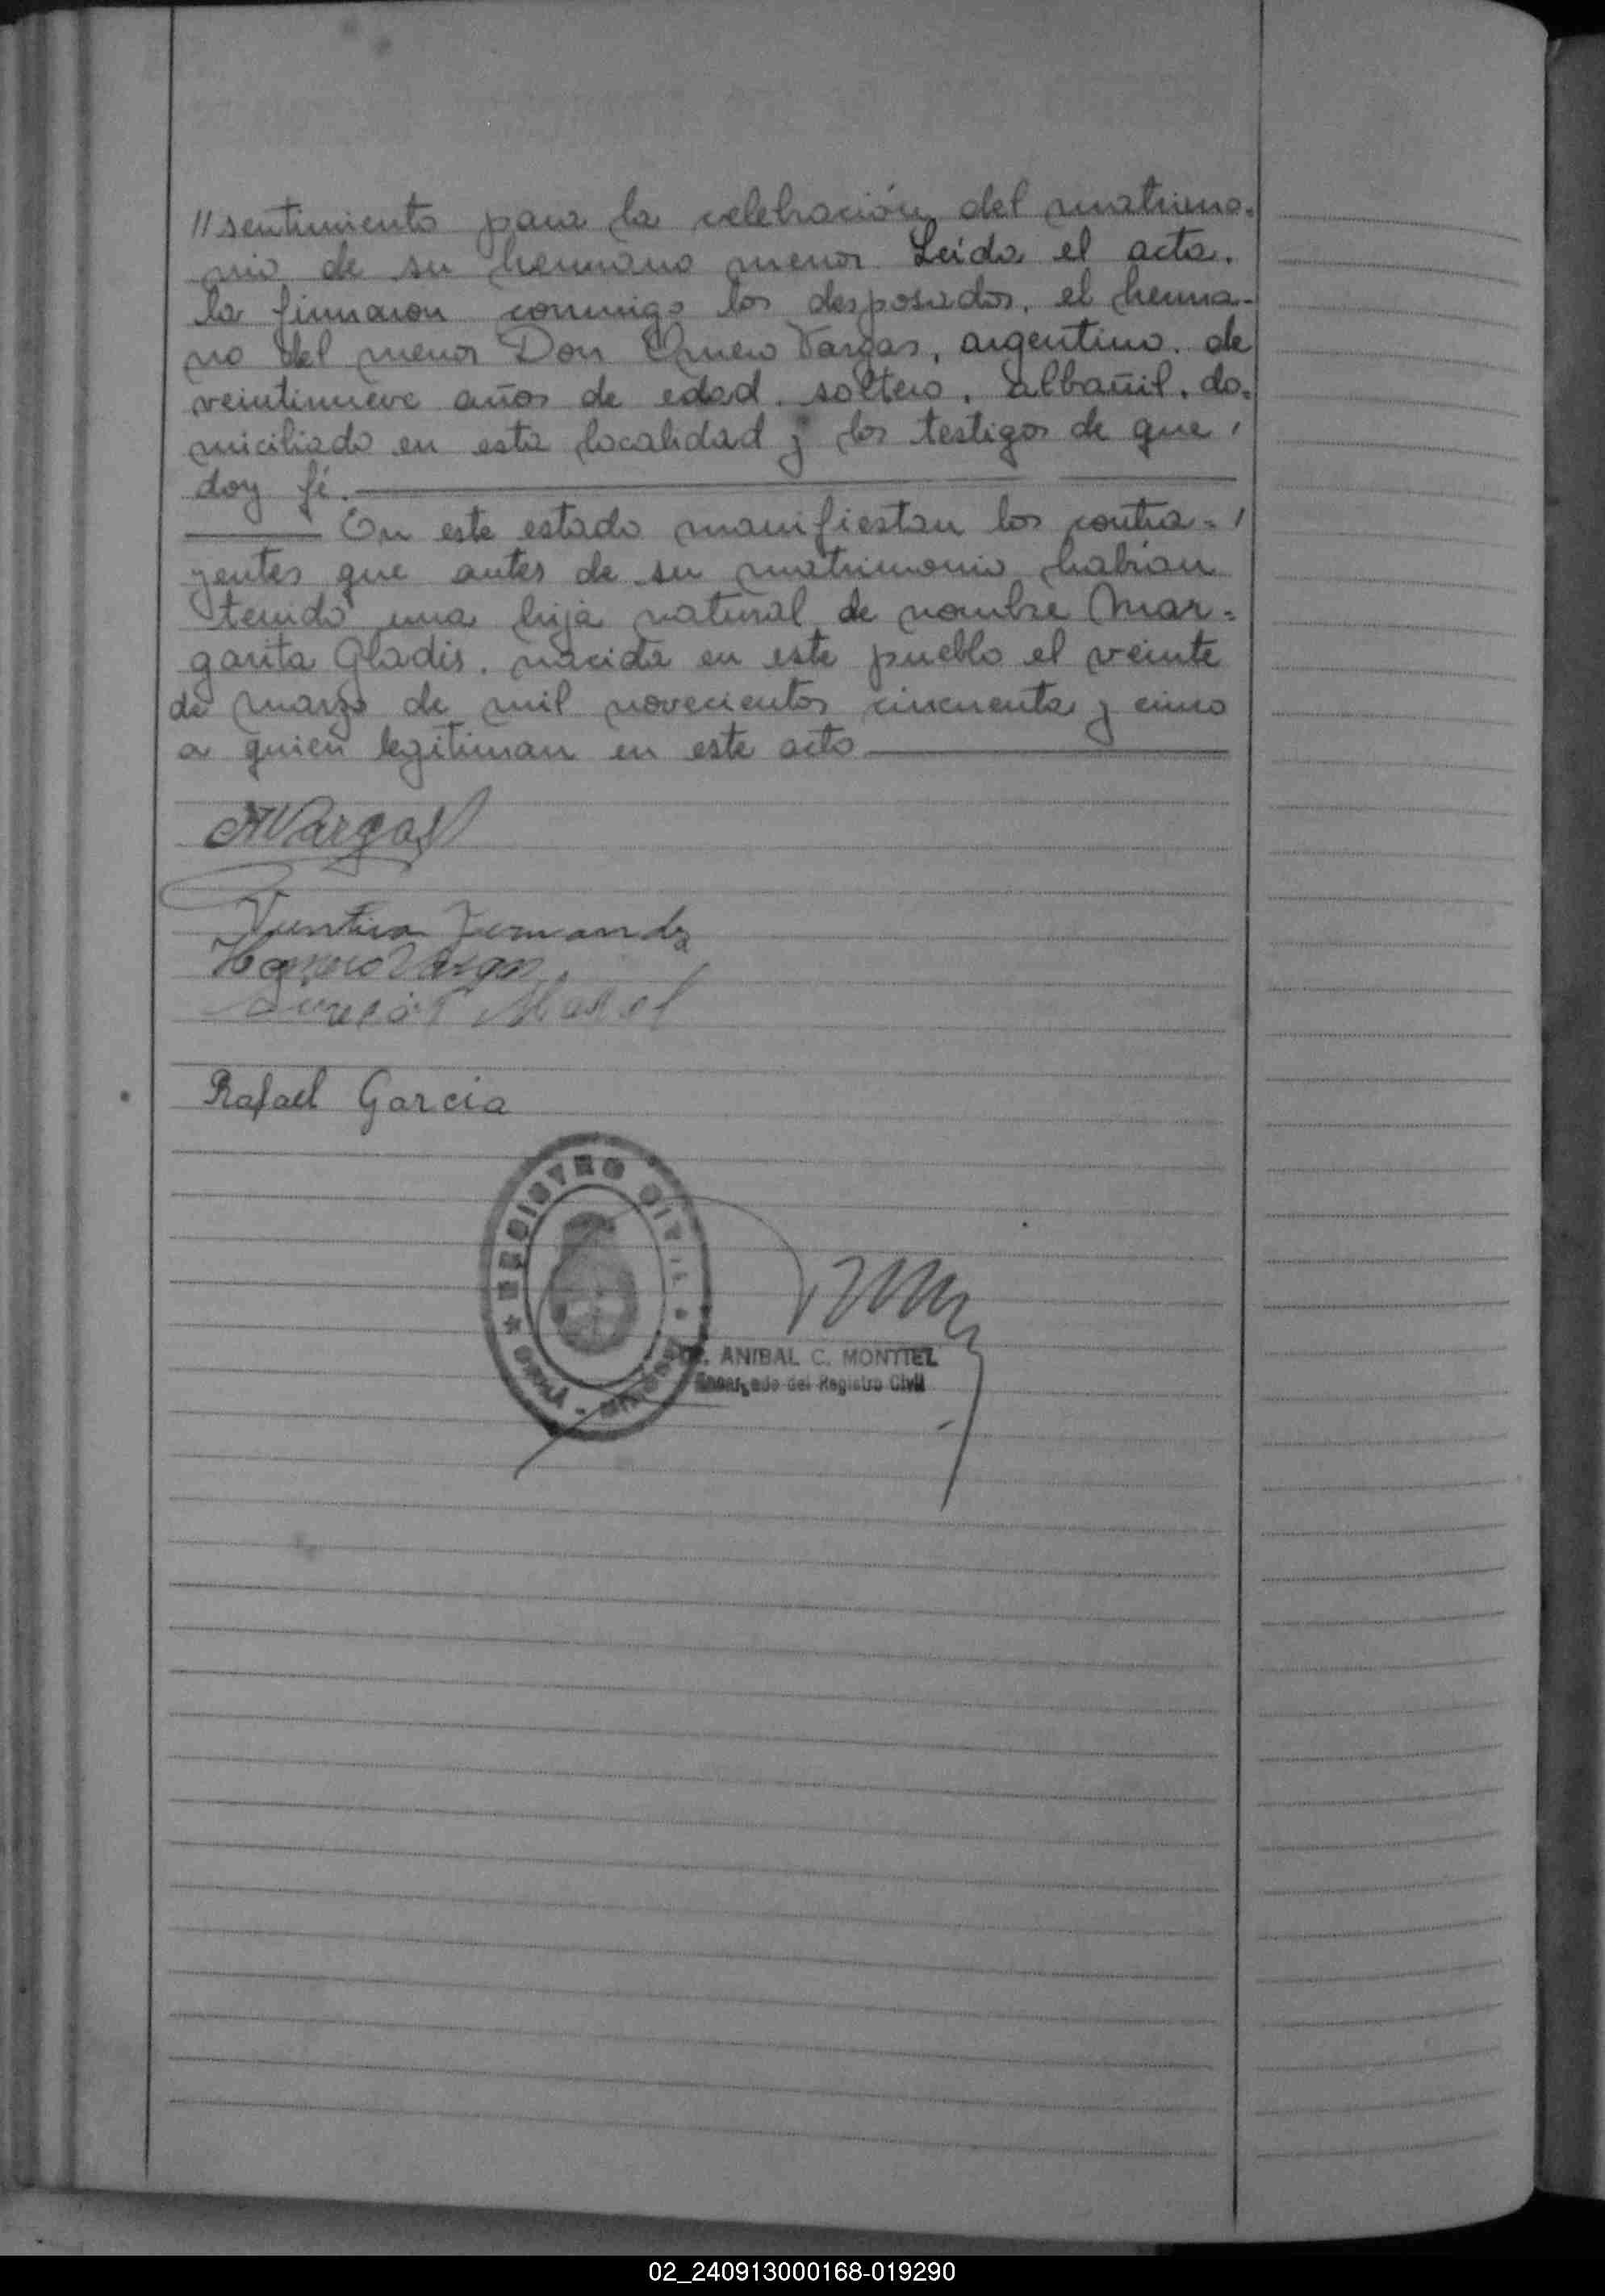 //sentimiento para la celebración del matrimo-
nio de su hermano menor. Leída el acta,
la firmaron conmigo los desposados, el herma-
no del menor Don Omero Vargas, argentino, de
veintinueve años de edad, soltero, albañil, do-
miciliado en esta localidad y los testigos de que
doy fé.
En este estado manifiestan los contra=
yentes que antes de su matrimonio habían
tenido una hija natural de nombre Mar=
garita Gladis, nacida en este pueblo el veinte
de marzo de mil novecientos cincuenta y cinco
a quien legitiman en este acto
Vargas
Fernandez
Vargas
Rafael Garcia
REGISTRO CIVIL
ANIBAL C. MONTIEL
Encargado del Registro Civil
02_240913000168-019290